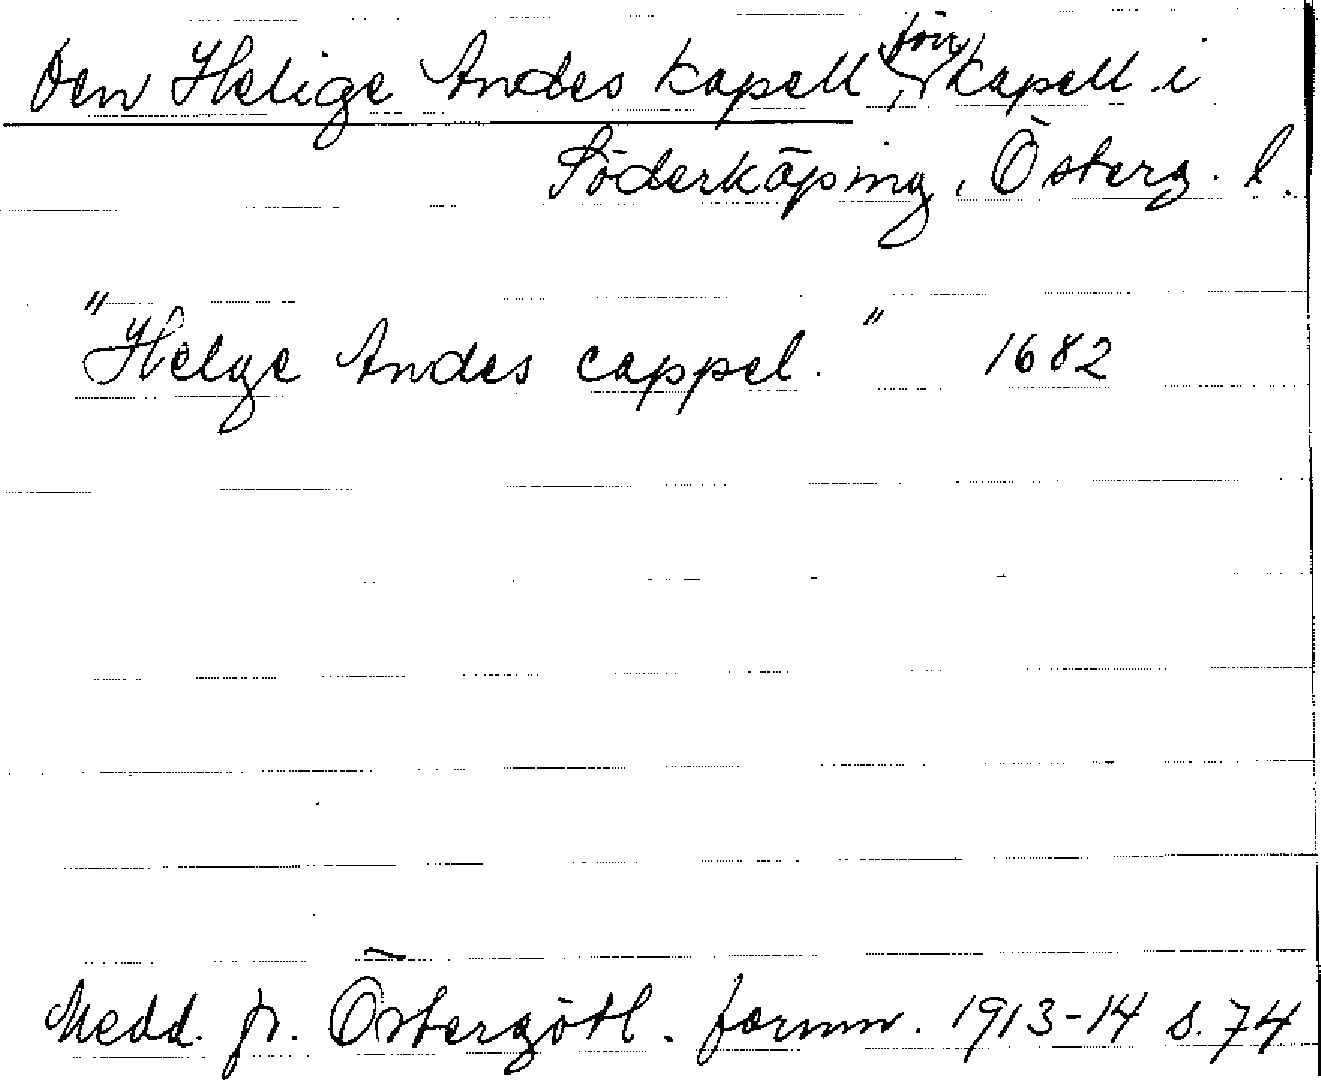 Den Helige Andes kapell, förr kapell i
Söderköping, Österg. l.
"Helge Andes cappel." 1682
Medd. fr. Östergötl. fornm. 1913-14 s. 74